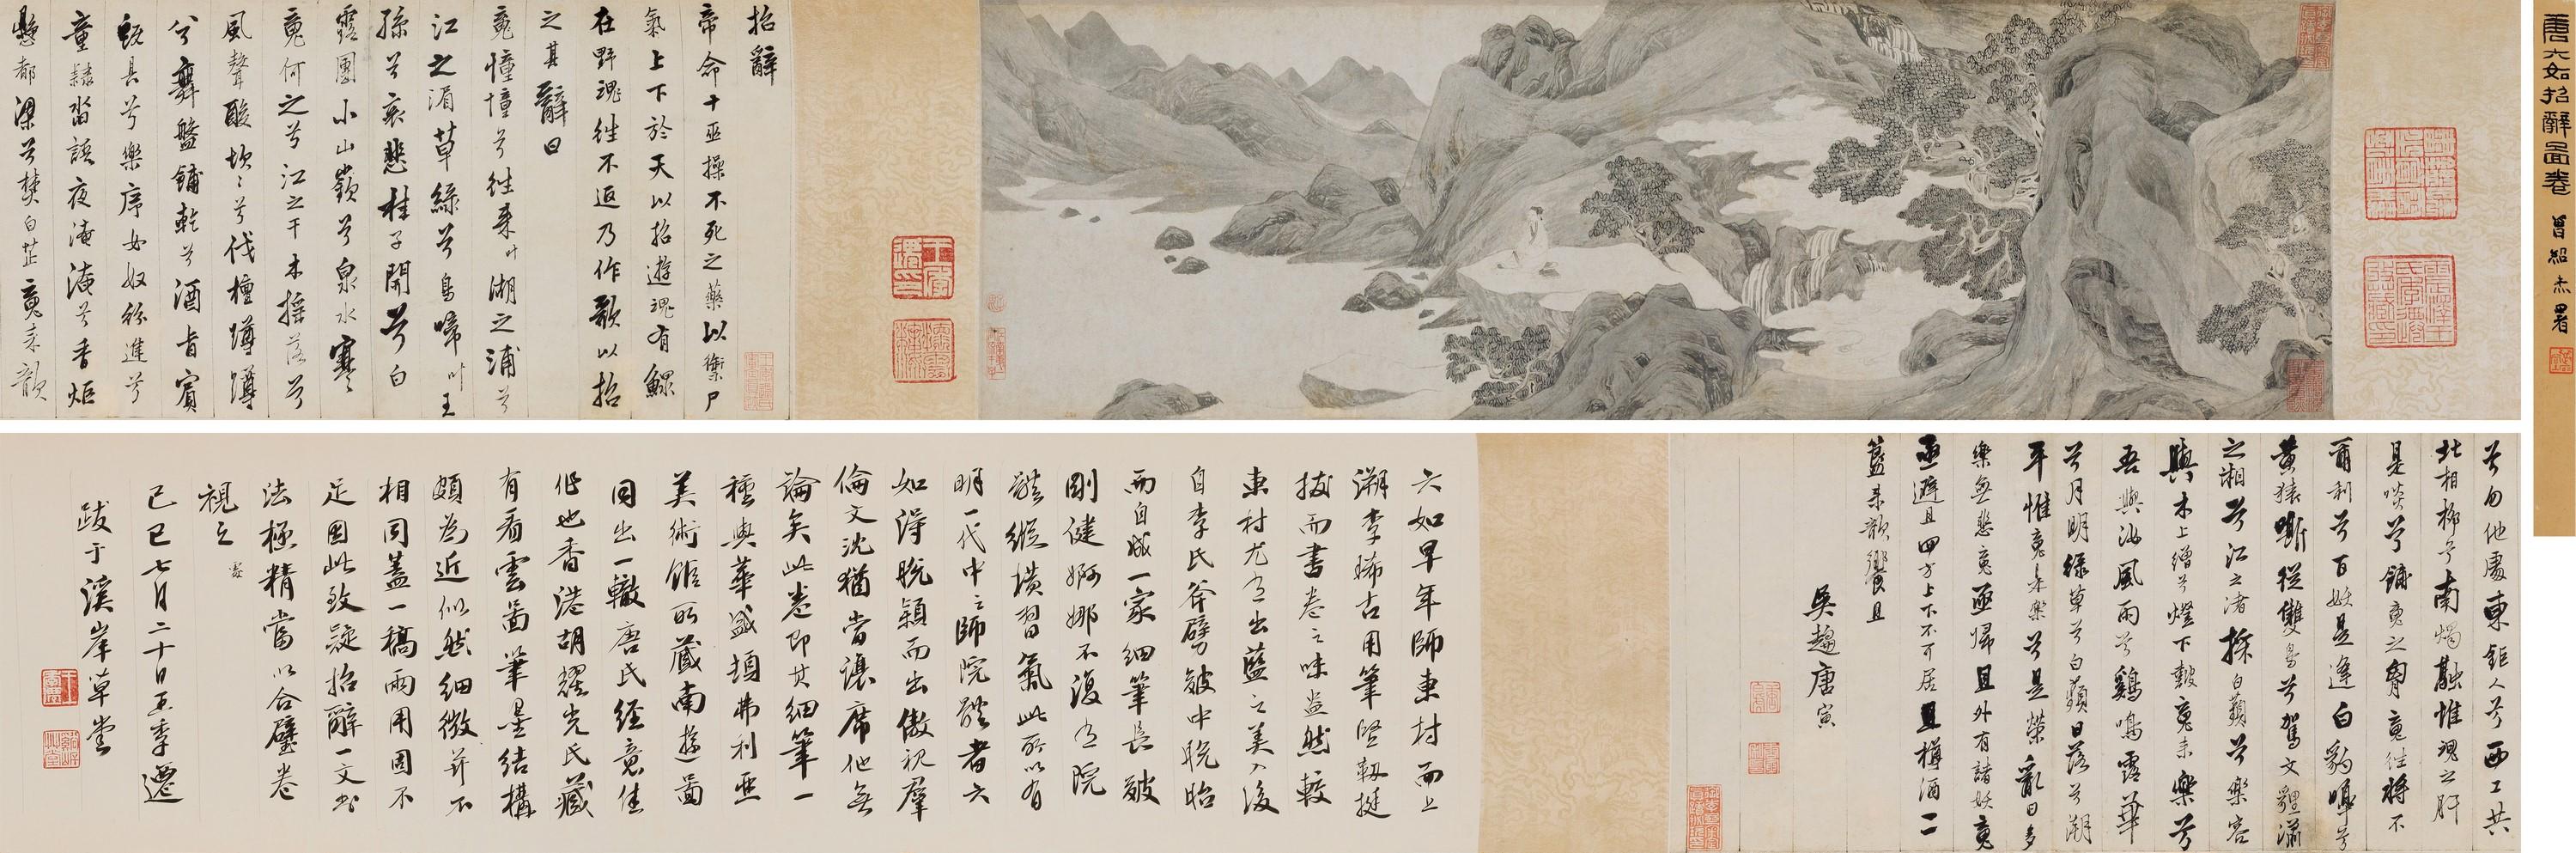 唐六如招辭圖卷 曾紹杰署
招辭
帝命十巫操不死之藥以禦尸
氣上下於天以招遊魂有鰥
在野魂往不返乃作歌以招
之其辭曰
䰟憧憧兮往來叶湖之浦兮
江之湄草綠兮鳥啼叶王
孫兮哀悲桂子開兮白
露團小山嶺兮泉水寒
䰟何之兮江之干木搖落兮
風聲酸坎〻兮伐檀蹲蹲
兮舞盤鋪乾兮酒旨賓
既具兮樂序女奴紛進兮
童隸沓語夜淹淹兮香炬
懸都梁兮焚白芷䰟來歆
兮勿他處東鉅人兮西工共
北相柳兮南燭融惟魂之肝
是啖兮鋪䰟之胷䰟往將不
爾利兮百妖是逢白豹嘷兮
黃猿嘶從雙鳥兮駕文貍瀟
之湘兮江之渚採白蘋兮樂容
與木上繒兮燈下鼓䰟來樂兮
吾與汝風雨兮雞鳴露華
兮月明綠草兮白蘋日落兮湖
平惟䰟來樂兮是榮亂曰多
樂無悲䰟亟歸且外有諸妖䰟
亟避且四方上下不可居且樽酒二
簋來歆饗且
吳趨唐寅
六如早年師東村而上
溯李晞古用筆堅韌挺
拔而書卷之味盎然較
東村尤有出藍之美入後
自李氏斧劈皴中脫胎
而自成一家細筆長皴
剛健婀娜不復有院
體縱橫習氣此所以有
明一代中之師院體者六
如得脫穎而出傲視羣
倫文沈猶當讓席他無
論矣此卷即其細筆一
種與華盛頓弗利亞
美術館所藏南遊圖
同出一轍唐氏經意佳
作也香港胡耀光氏藏
有看雲圖筆墨結構
頗為近似然細微并不
相同蓋一稿兩用固不
足因此致疑招辭一文書
法極精當以合璧卷
視之
己巳七月二十日王季遷
跋于溪岸草堂